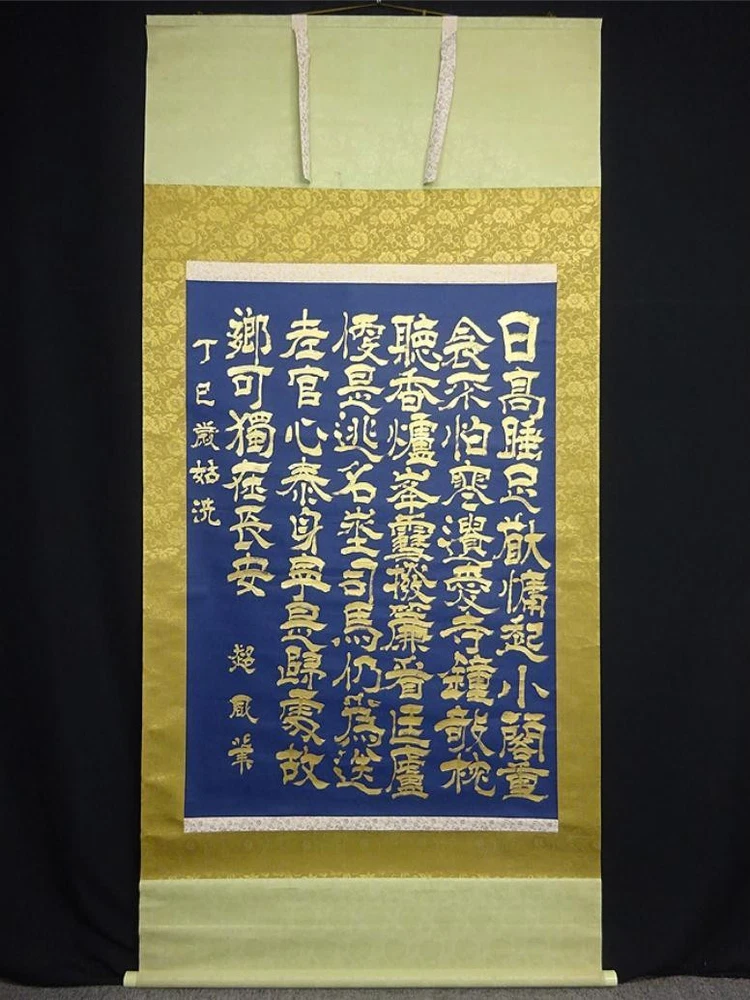 日高睡足猷慵起小閣重
衾不怕寒遺愛寺鐘敧枕
聽香爐峯雪撥簾看匡廬
便是逃名埊司馬仍為送
老官心泰身寧是歸處故
鄉可獨在長安
丁巳歲姑洗
超風筆